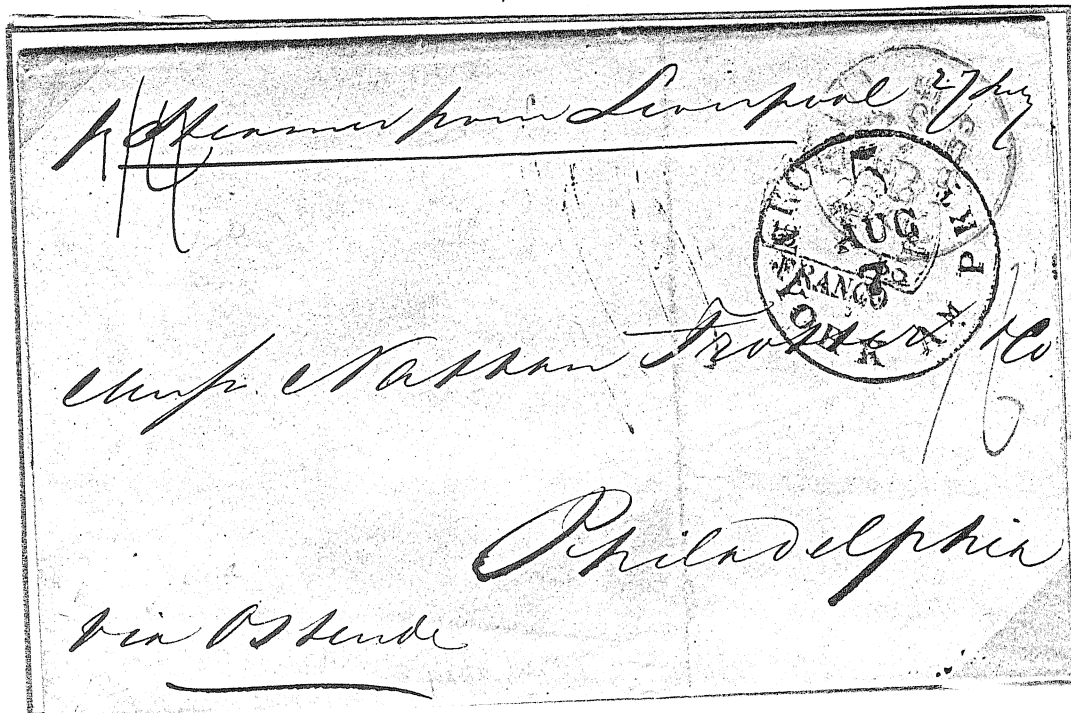 p Steamer from Liverpool 27 July
5
AUG
7
NEW YORK AM PKT
FRANCO
Messrs. Nathan Trotter & Co.
Philadelphia
via Ostende